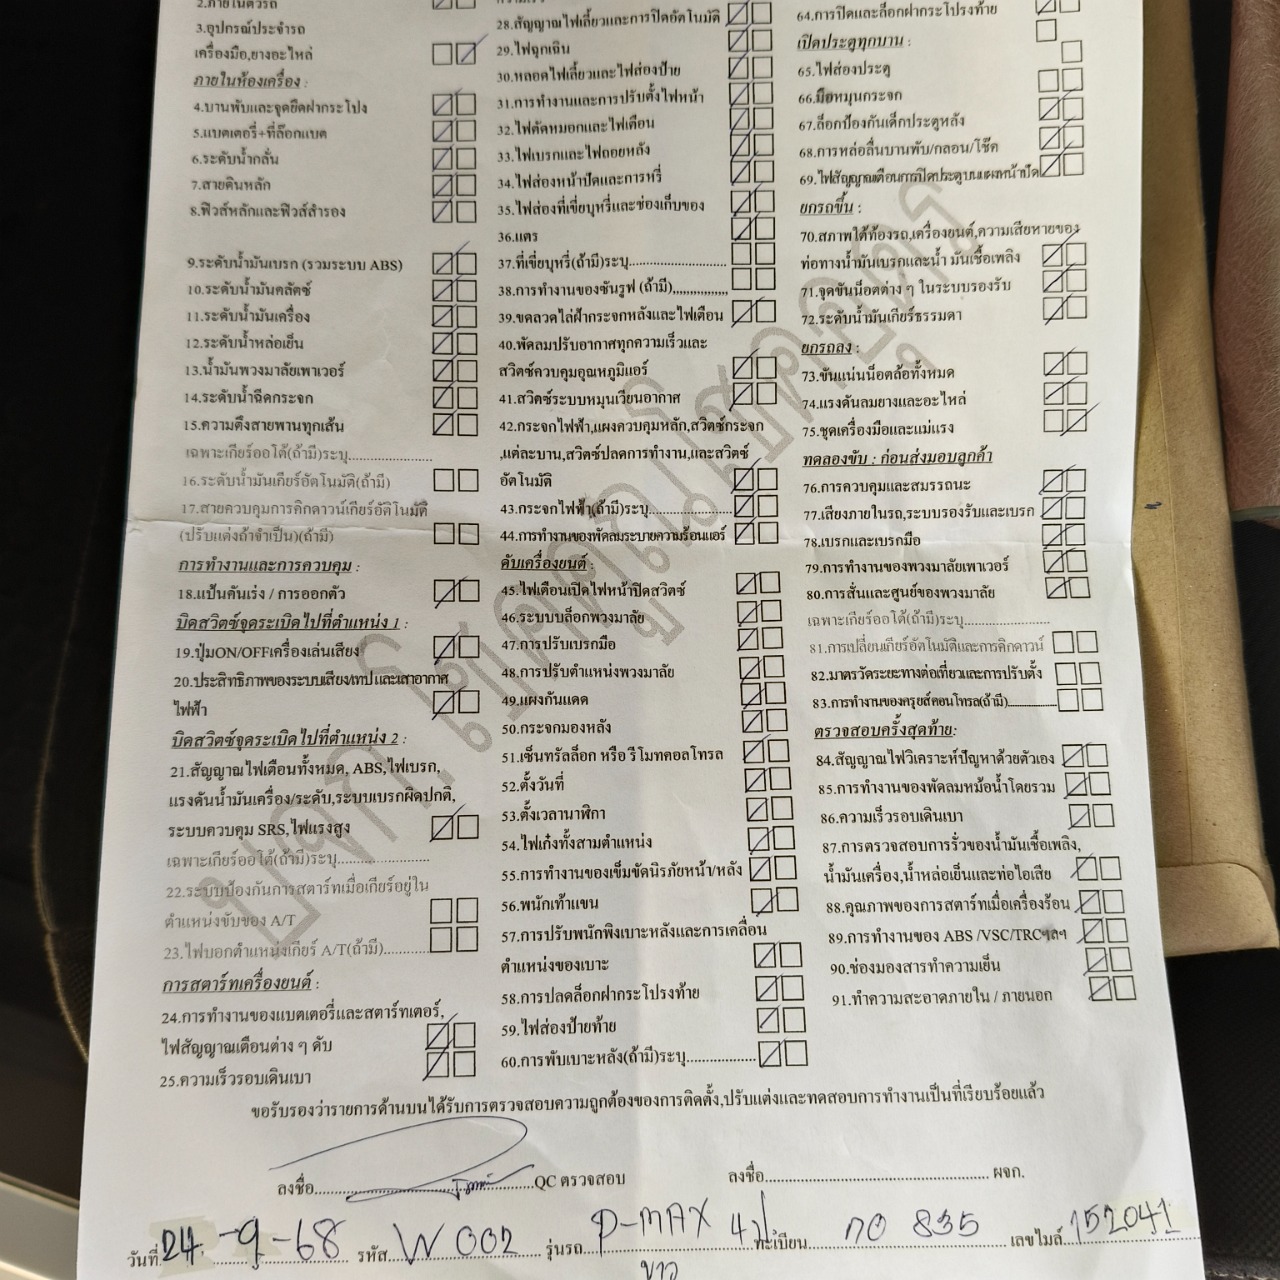 2.ภายในตัวรถ
3.อุปกรณ์ประจำรถ
เครื่องมือ,ยางอะไหล่
ภายในห้องเครื่อง :
4.บานพับและจุดยึดฝากระโปง
5.แบตเตอรี่+ที่ล๊อกแบต
6.ระดับน้ำกลั่น
7.สายดินหลัก
8.ฟิวส์หลักและฟิวส์สำรอง
9.ระดับน้ำมันเบรก (รวมระบบ ABS)
10.ระดับน้ำมันคลัตช์
11.ระดับน้ำมันเครื่อง
12.ระดับน้ำหล่อเย็น
13.น้ำมันพวงมาลัยเพาเวอร์
14.ระดับน้ำฉีดกระจก
15.ความตึงสายพานทุกเส้น
เฉพาะเกียร์ออโต้(ถ้ามี)ระบุ....................
16.ระดับน้ำมันเกียร์อัตโนมัติ(ถ้ามี)
17.สายควบคุมการคิกดาวน์เกียร์อัตโนมัติ
(ปรับแต่งถ้าจำเป็น)(ถ้ามี)
การทำงานและการควบคุม :
18.แป้นคันเร่ง / การออกตัว
บิดสวิตช์จุดระเบิดไปที่ตำแหน่ง 1 :
19.ปุ่มON/OFFเครื่องเล่นเสียง
20.ประสิทธิภาพของระบบเสียง/เทป และเสาอากาศ
ไฟฟ้า
บิดสวิตซ์จุดระเบิดไปที่ตำแหน่ง 2 :
21.สัญญาณไฟเตือนทั้งหมด, ABS,ไฟเบรก,
แรงดันน้ำมันเครื่อง/ระดับ,ระบบเบรกผิดปกติ,
ระบบควบคุม SRS,ไฟแรงสูง
เฉพาะเกียร์ออโต้(ถ้ามี)ระบุ....................
22.ระบบป้องกันการสตาร์ทเมื่อเกียร์อยู่ใน
ตำแหน่งขับของ A/T
23.ไฟบอกตำแหน่งเกียร์ A/T(ถ้ามี)..........
การสตาร์ทเครื่องยนต์ :
24.การทำงานของแบตเตอรี่และสตาร์ทเตอร์,
ไฟสัญญาณเตือนต่าง ๆ ดับ
25.ความเร็วรอบเดินเบา
28.สัญญาณไฟเลี้ยวและการปิดอัตโนมัติ
29.ไฟฉุกเฉิน
30.หลอดไฟเลี้ยวและไฟส่องป้าย
31.การทำงานและการปรับตั้งไฟหน้า
32.ไฟตัดหมอกและไฟเตือน
33.ไฟเบรกและไฟถอยหลัง
34.ไฟส่องหน้าปัดและการหรี่
35.ไฟส่องที่เขี่ยบุหรี่และช่องเก็บของ
36.แตร
37.ที่เขี่ยบุหรี่(ถ้ามี)ระบุ.......................
38.การทำงานของซันรูฟ (ถ้ามี)...............
39.ขดลวดไล่ฝ้ากระจกหลังและไฟเตือน
40.พัดลมปรับอากาศทุกความเร็วและ
สวิตซ์ควบคุมอุณหภูมิแอร์
41.สวิตซ์ระบบหมุนเวียนอากาศ
42.กระจกไฟฟ้า,แผงควบคุมหลัก,สวิตซ์กระจก
,แต่ละบาน,สวิตซ์ปลดการทำงาน,และสวิตซ์
อัตโนมัติ
43.กระจกไฟฟ้า(ถ้ามี)ระบุ....................
44.การทำงานของพัดลมระบายความร้อนแอร์
ดับเครื่องยนต์ :
45.ไฟเตือนเปิดไฟหน้าปิดสวิตซ์
46.ระบบบล็อกพวงมาลัย
47.การปรับเบรกมือ
48.การปรับตำแหน่งพวงมาลัย
49.แผงกันแดด
50.กระจกมองหลัง
51.เซ็นทรัลล็อก หรือ รีโมทคอลโทรล
52.ตั้งวันที่
53.ตั้งเวลานาฬิกา
54.ไฟเก๋งทั้งสามตำแหน่ง
55.การทำงานของเข็มขัดนิรภัยหน้า/หลัง
56.พนักเท้าแขน
57.การปรับพนักพิงเบาะหลังและการเคลื่อน
ตำแหน่งของเบาะ
58.การปลดล็อกฝากระโปรงท้าย
59.ไฟส่องป้ายท้าย
60.การพับเบาะหลัง(ถ้ามี)ระบุ.................
64.การปิดและล็อกฝากระโปรงท้าย
เปิดประตูทุกบาน :
65.ไฟส่องประตู
66.มือหมุนกระจก
67.ล็อกป้องกันเด็กประตูหลัง
68.การหล่อลื่นบานพับ/กลอน/โช๊ค
69.ไฟสัญญาณเตือนการปิดประตูบนแผงหน้าปัด
ยกรถขึ้น :
70.สภาพใต้ท้องรถ,เครื่องยนต์,ความเสียหายของ
ท่อทางน้ำมันเบรกและน้ำ มันเชื้อเพลิง
71.จุดขันน็อตต่าง ๆ ในระบบรองรับ
72.ระดับน้ำมันเกียร์ธรรมดา
ยกรถลง :
73.ขันแน่นน็อตล้อทั้งหมด
74.แรงดันลมยางและอะไหล่
75.ชุดเครื่องมือและแม่แรง
ทดลองขับ : ก่อนส่งมอบลูกค้า
76.การควบคุมและสมรรถนะ
77.เสียงภายในรถ,ระบบรองรับและเบรก
78.เบรกและเบรกมือ
79.การทำงานของพวงมาลัยเพาเวอร์
80.การสั่นและศูนย์ของพวงมาลัย
เฉพาะเกียร์ออโต้(ถ้ามี)ระบุ....................
81.การเปลี่ยนเกียร์อัตโนมัติและการคิกดาวน์
82.มาตรวัดระยะทางต่อเที่ยวและการปรับตั้ง
83.การทำงานของครุยส์คอนโทรล(ถ้ามี)....................
ตรวจสอบครั้งสุดท้าย:
84.สัญญาณไฟวิเคราะห์ปัญหาด้วยตัวเอง
85.การทำงานของพัดลมหม้อน้ำโดยรวม
86.ความเร็วรอบเดินเบา
87.การตรวจสอบการรั่วของน้ำมันเชื้อเพลิง,
น้ำมันเครื่อง,น้ำหล่อเย็นและท่อไอเสีย
88.คุณภาพของการสตาร์ทเมื่อเครื่องร้อน
89.การทำงานของ ABS /VSC/TRCฯลฯ
90.ช่องมองสารทำความเย็น
91.ทำความสะอาดภายใน / ภายนอก
ขอรับรองว่ารายการด้านบนได้รับการตรวจสอบความถูกต้องของการติดตั้ง,ปรับแต่งและทดสอบการทำงานเป็นที่เรียบร้อยแล้ว
ลงชื่อ....................QC ตรวจสอบ ลงชื่อ.................................... ผจก.
วันที่ 24-9-68 รหัส W 002 รุ่นรถ P-MAX 4ป ทะเบียน ก0 835 เลขไมล์ 152041
ขาว